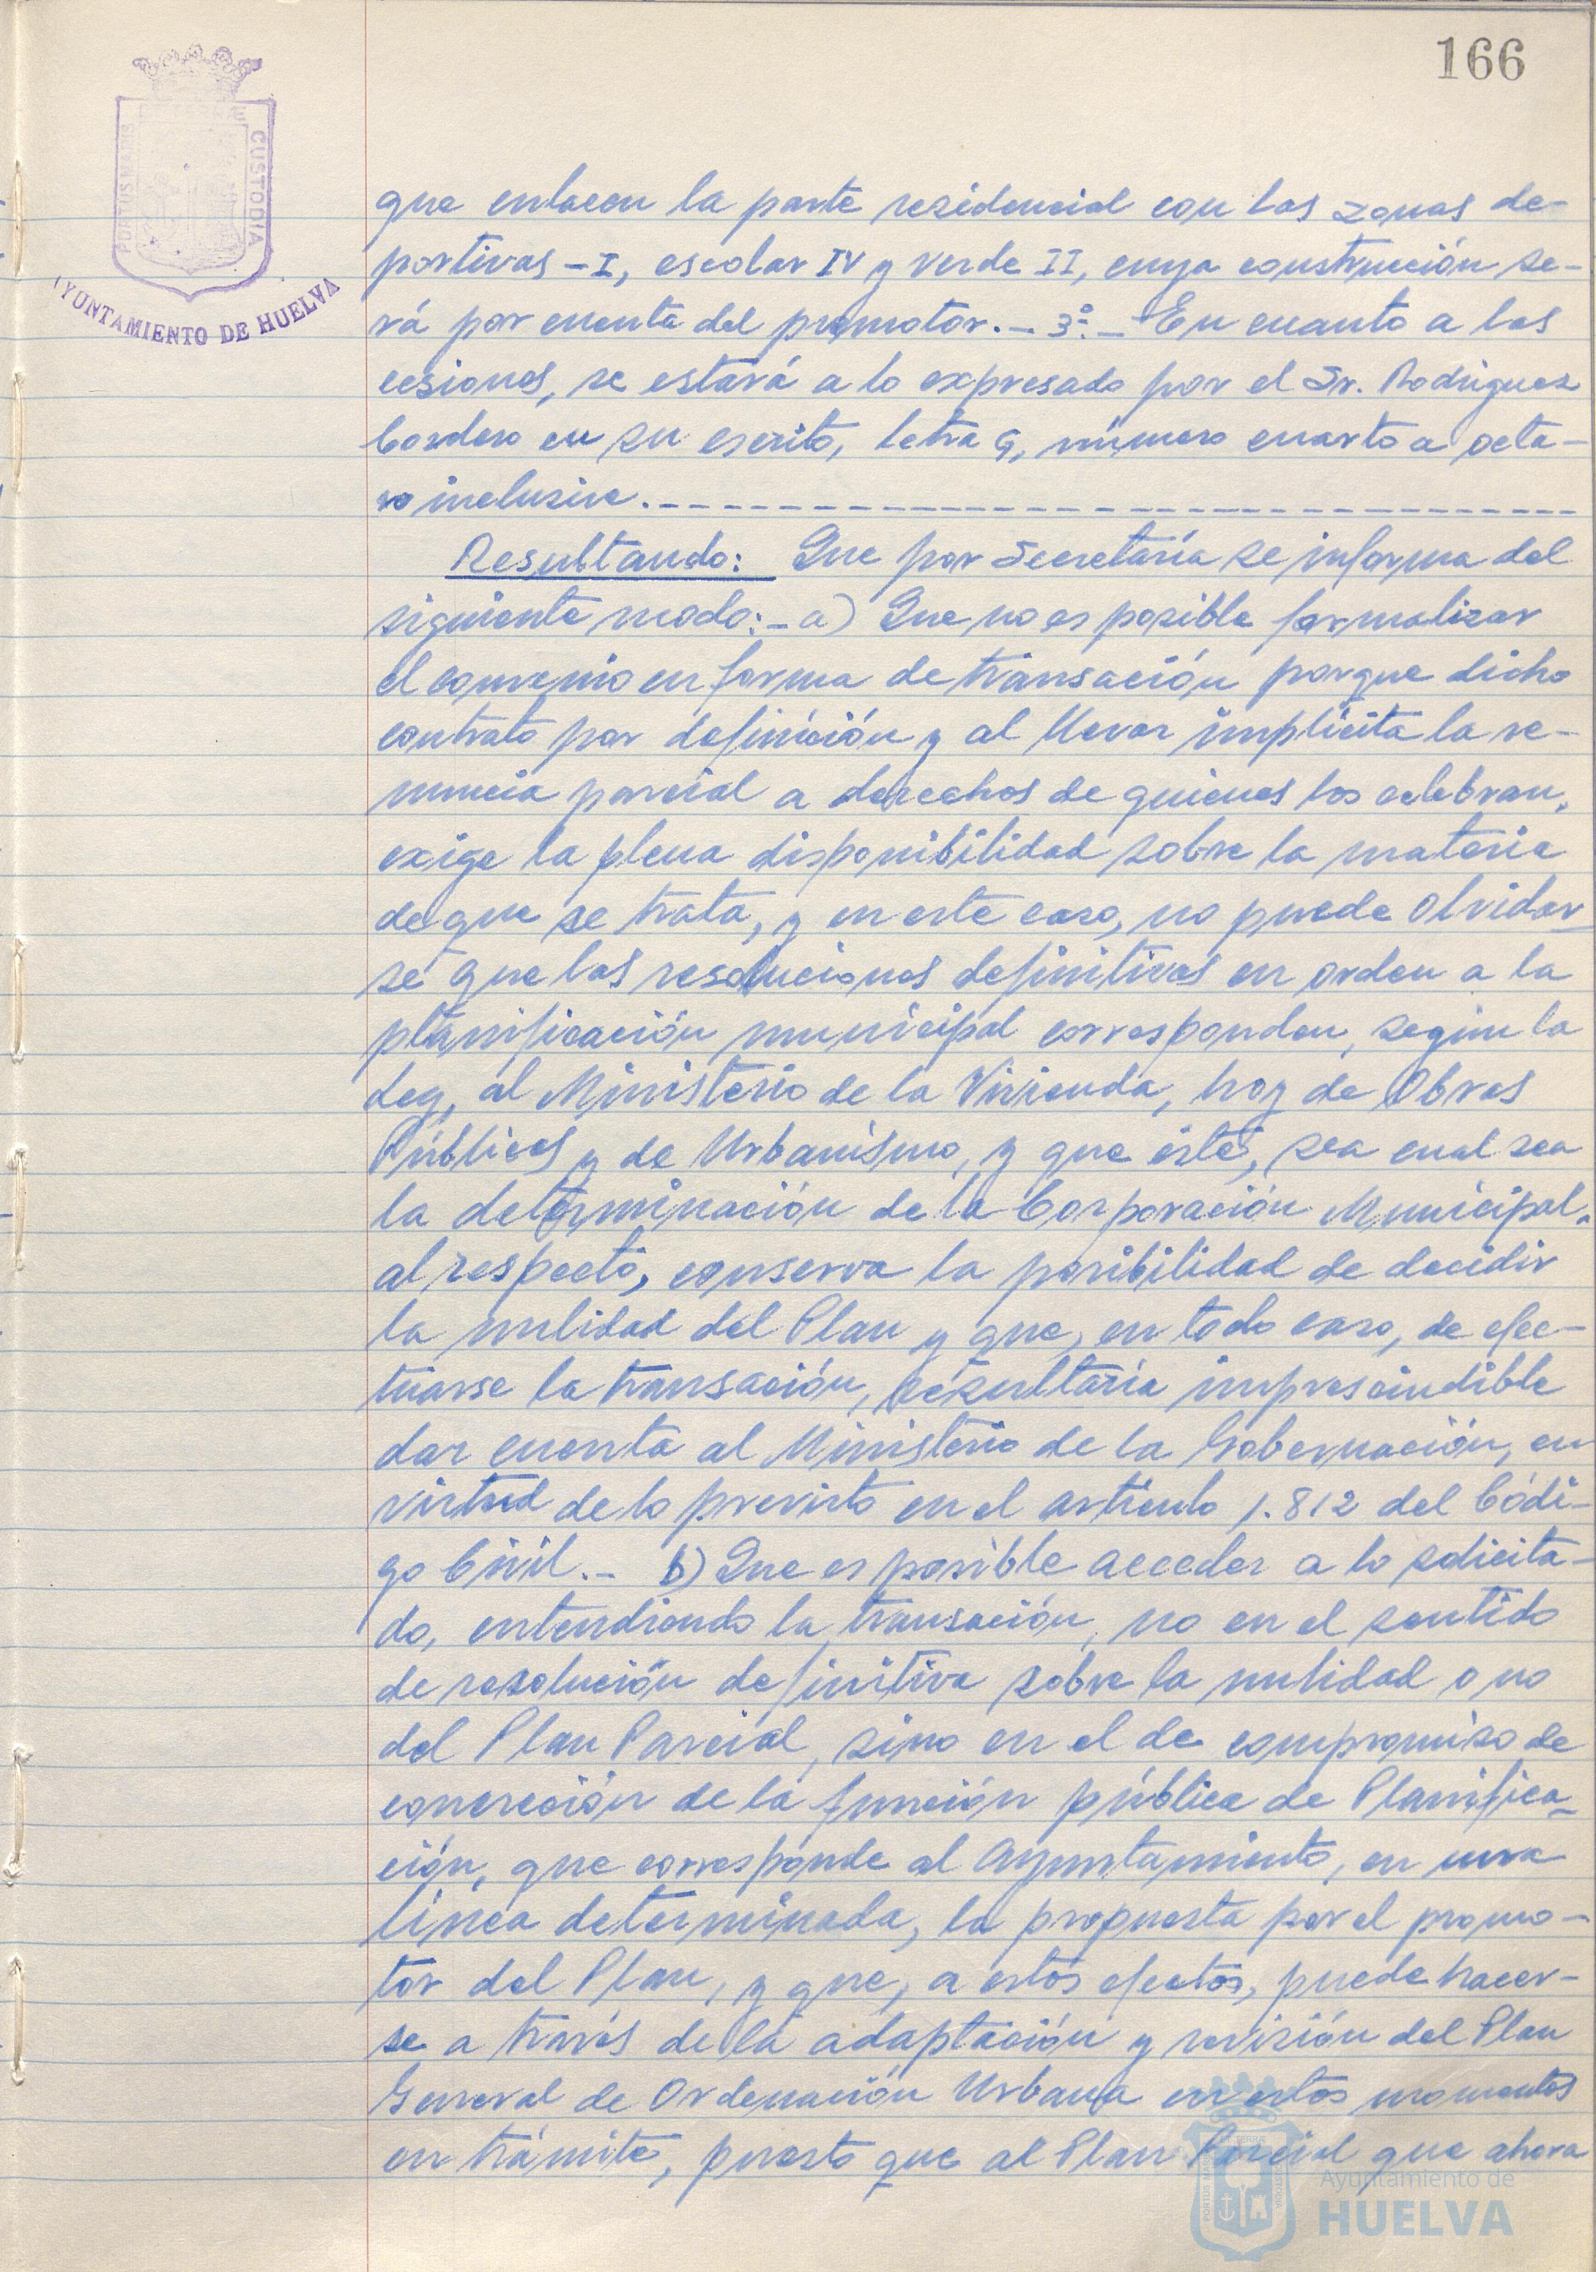 166
PORTUS MARIS
CUSTODIA
AYUNTAMIENTO DE HUELVA
que enlacen la parte residencial con las zonas de-
portivas-I, escolar IV y verde II, cuya construcción se-
rá por cuenta del promotor.- 3º.- En cuanto a las
cesiones, se estará a lo expresado por el Sr. Rodríguez
Cordero en su escrito, letra G, número cuarto a octa-
vo inclusive.-----
Resultando: Que por Secretaría se informa del
siguiente modo:- a) Que no es posible formalizar
el convenio en forma de transación porque dicho
contrato por definición y al llevar implícita la re-
nuncia parcial a derechos de quienes los celebran,
exige la plena disponibilidad sobre la materia
de que se trata, y en este caso, no puede olvidar
se que las resoluciones definitivas en orden a la
planificación municipal corresponden, según la
Ley, al Ministerio de la Vivienda, hoy de Obras
Públicas y de Urbanismo, y que éste, sea cual sea
la determinación de la Corporación Municipal,
al respecto, conserva la posibilidad de decidir
la nulidad del Plan y que, en todo caso, de efec-
tuarse la transación, resultaría imprescindible
dar cuenta al Ministerio de la Gobernación, en
virtud de lo previsto en el artículo 1.812 del Códi-
go Civil.- b) Que es posible acceder a lo solicita-
do, entendiendo la transación, no en el sentido
de resolución definitiva sobre la nulidad o no
del Plan Parcial, sino en el de compromiso de
concreción de la función pública de Planifica-
ción, que corresponde al Ayuntamiento, en una
línea determinada, la propuesta por el promo-
tor del Plan, y que, a estos efectos, puede hacer-
se a través de la adaptación y revisión del Plan
General de Ordenación Urbana en estos momentos
en trámite, puesto que al Plan Parcial que ahora
Ayuntamiento de
HUELVA